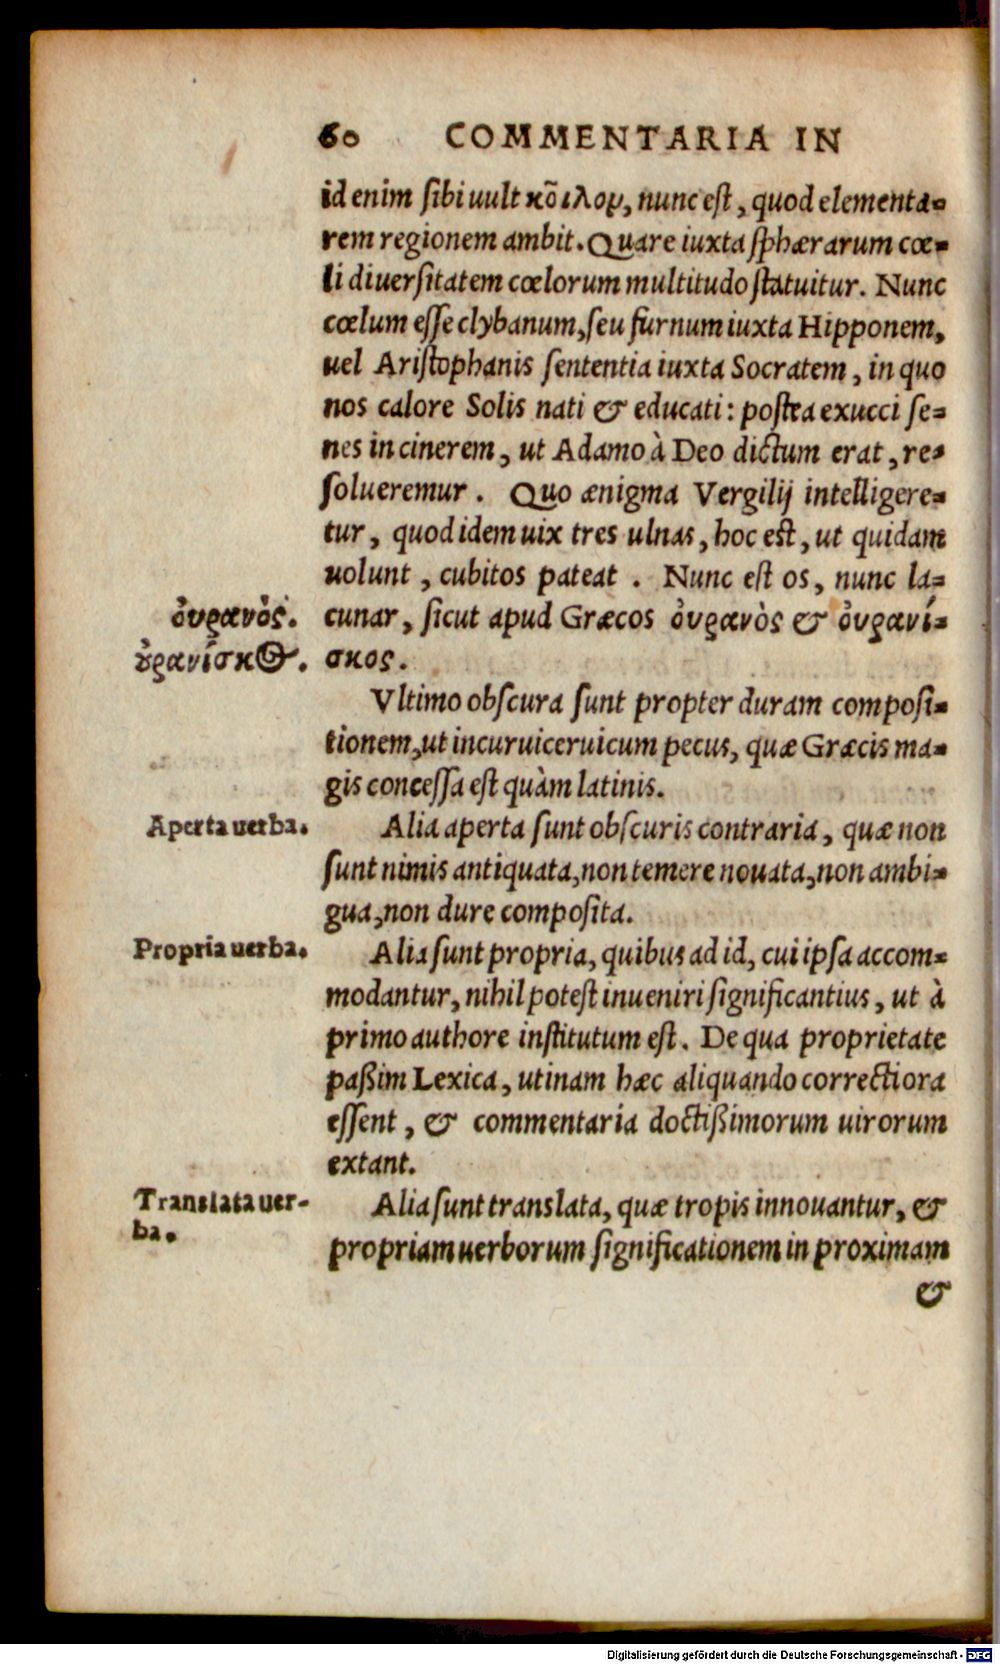 60 COMMENTARIA IN
id enim ſibi uult κο͂ιλον, nunc eſt, quod elementa-
rem regionem ambit. Quare iuxta ſphærarum cœ-
li diuerſitatem cœlorum multitudo ſtatuitur. Nunc
cœlum eſſe clybanum, ſeu furnum iuxta Hipponem,
uel Ariſtophanis ſententia iuxta Socratem, in quo
nos calore Solis nati & educati: poſtea exucci ſe-
nes in cinerem, ut Adamo à Deo dictum erat, re-
ſolueremur. Quo ænigma Vergilij intelligere-
tur, quod idem uix tres ulnas, hoc est, ut quidam
uolunt, cubitos pateat. Nunc eſt os, nunc la-
ὀυρανὸς.
cunar, ſicut apud Græcos ὀυρανὸς & ὀυρανί-
ȣ̓ρανίσκος.
σκος.
Vltimo obſcura ſunt propter duram compoſi-
tionem, ut incuruiceruicum pecus, quæ Græcis ma-
gis conceſſa eſt quàm latinis.
Aperta uerba.
Alia aperta ſunt obſcuris contraria, quæ non
ſunt nimis antiquata, non temere nouata, non ambi-
gua, non dure compoſita.
Propria uerba.
Alia ſunt propria, quibus ad id, cui ipſa accom-
modantur, nihil poteſt inueniri ſignificantius, ut à
primo authore inſtitutum eſt. De qua proprietate
paßim Lexica, utinam hæc aliquando correctiora
eſſent, & commentaria doctißimorum uirorum
extant.
Translata uer-
ba.
Alia ſunt translata, quæ tropis innouantur, &
propriam uerborum ſignificationem in proximam
&
Digitalisierung gefördert durch die Deutsche Forschungsgemeinschaft - DFG